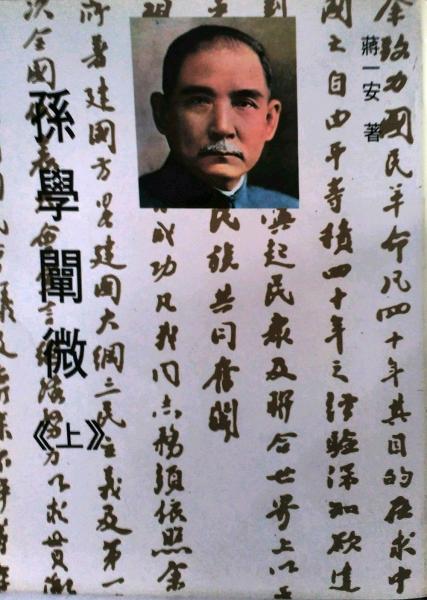 蔣一安 著
余致力國民革命凡四十年其目的在求中
國之自由平等積四十年之經驗深知欲達
到
喚起民眾及聯合世界上以
民族共同奮鬪
現
成功凡我同志務須依照余
所著建國方畧建國大綱三民主義及第一
次全國代表大會宣言繼續努力以求貫徹
民會議及廢除不平等
孫學闡微《上》